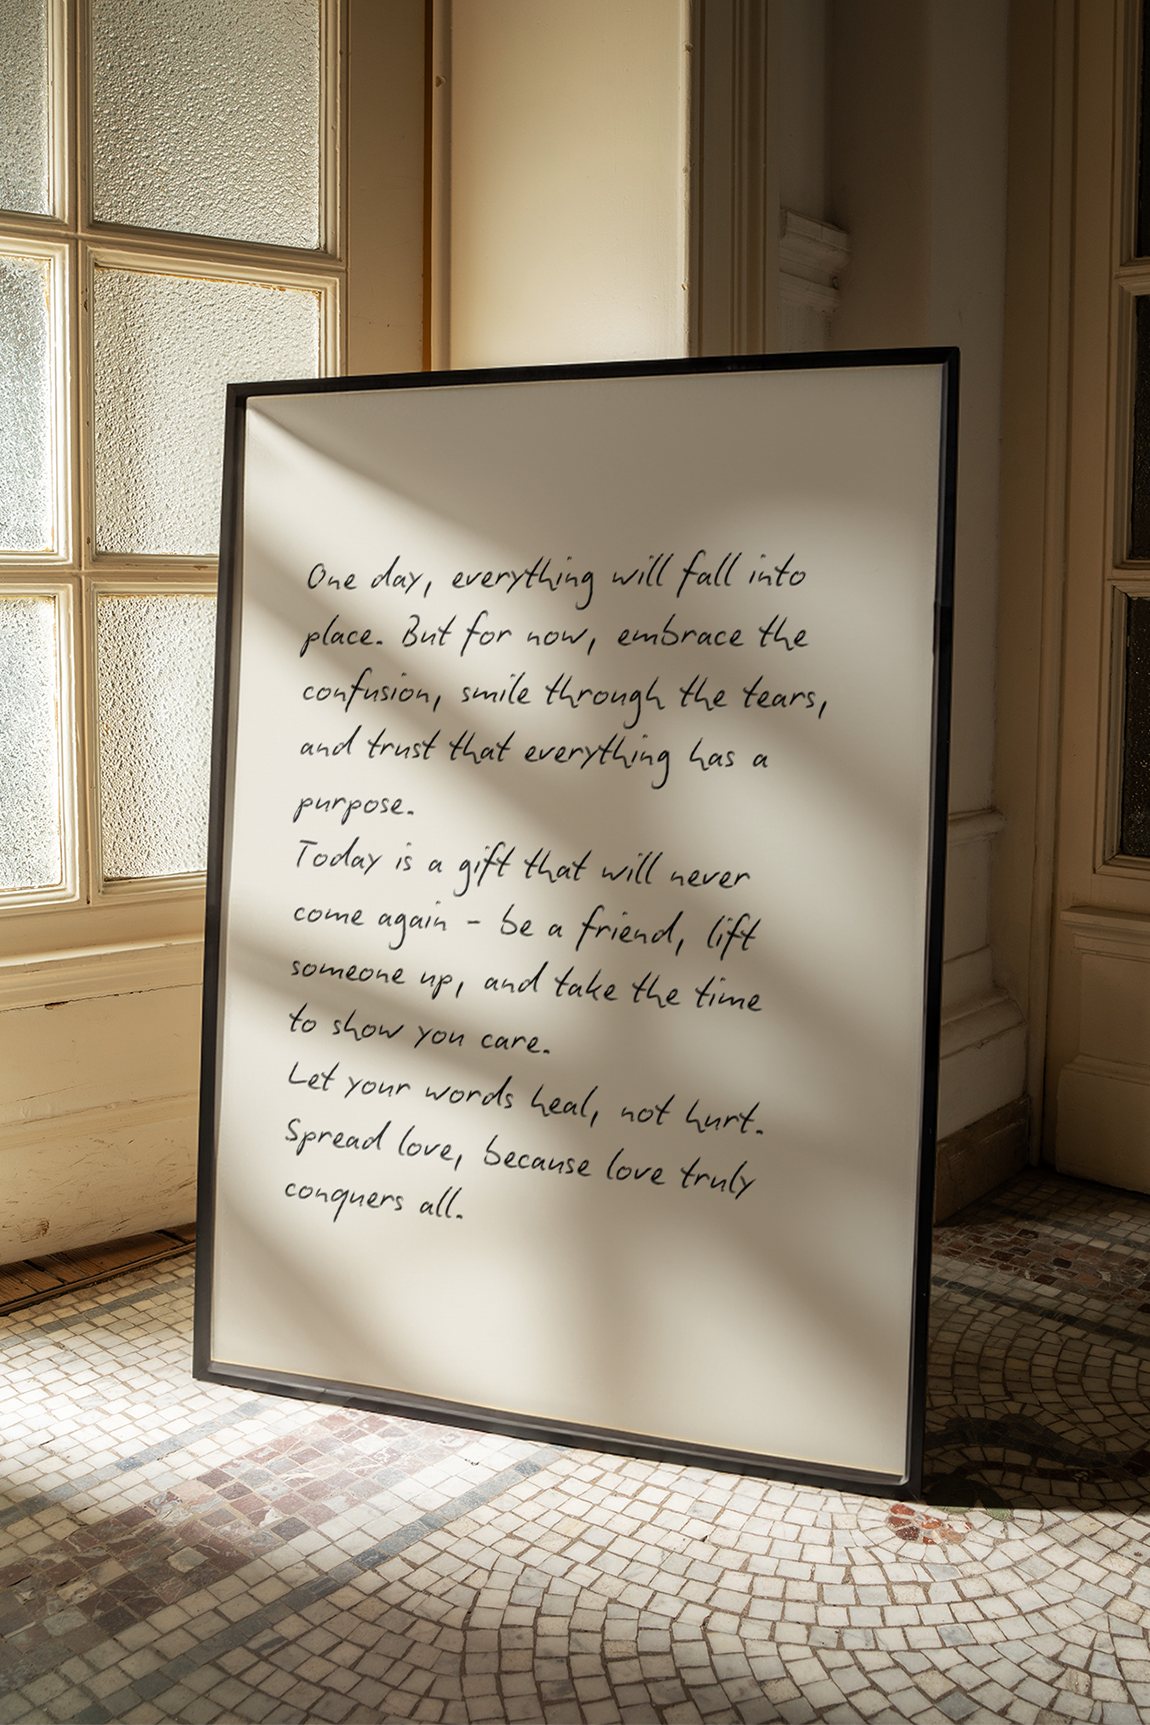 One day, everything will fall into
place. But for now, embrace the
confusion, smile through the tears,
and trust that everything has a
purpose.
Today is a gift that will never
come again - be a friend, lift
someone up, and take the time
to show you care.
Let your words heal, not hurt.
Spread love, because love truly
conquers all.